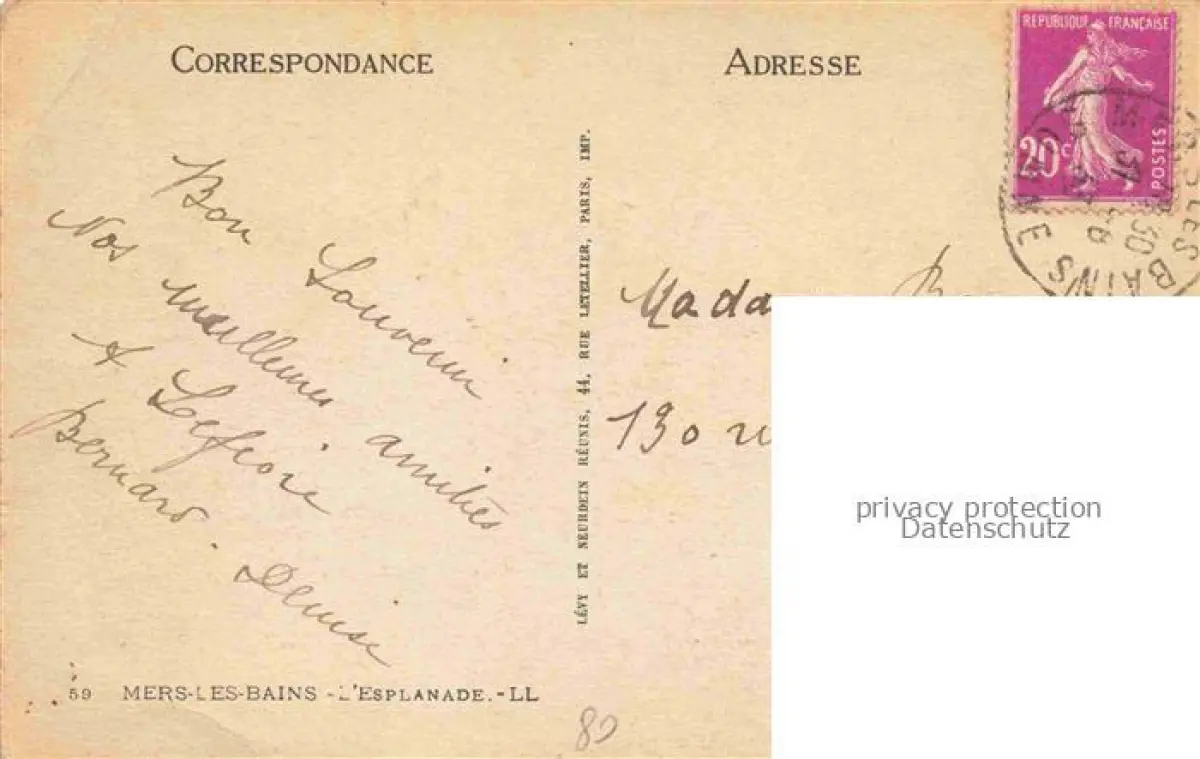 CORRESPONDANCE
ADRESSE
REPUBLIQUE FRANÇAISE
20c
POSTES
Bon Souvenir
Nos meilleures amitiés
A Lefevre
Bernard. Denise
LÉVY ET NEURDEIN RÉUNIS, 44, RUE LETELLIER, PARIS, IMP.
Mada
130
privacy protection
Datenschutz
59 MERS-LES-BAINS - L'ESPLANADE. - LL
80